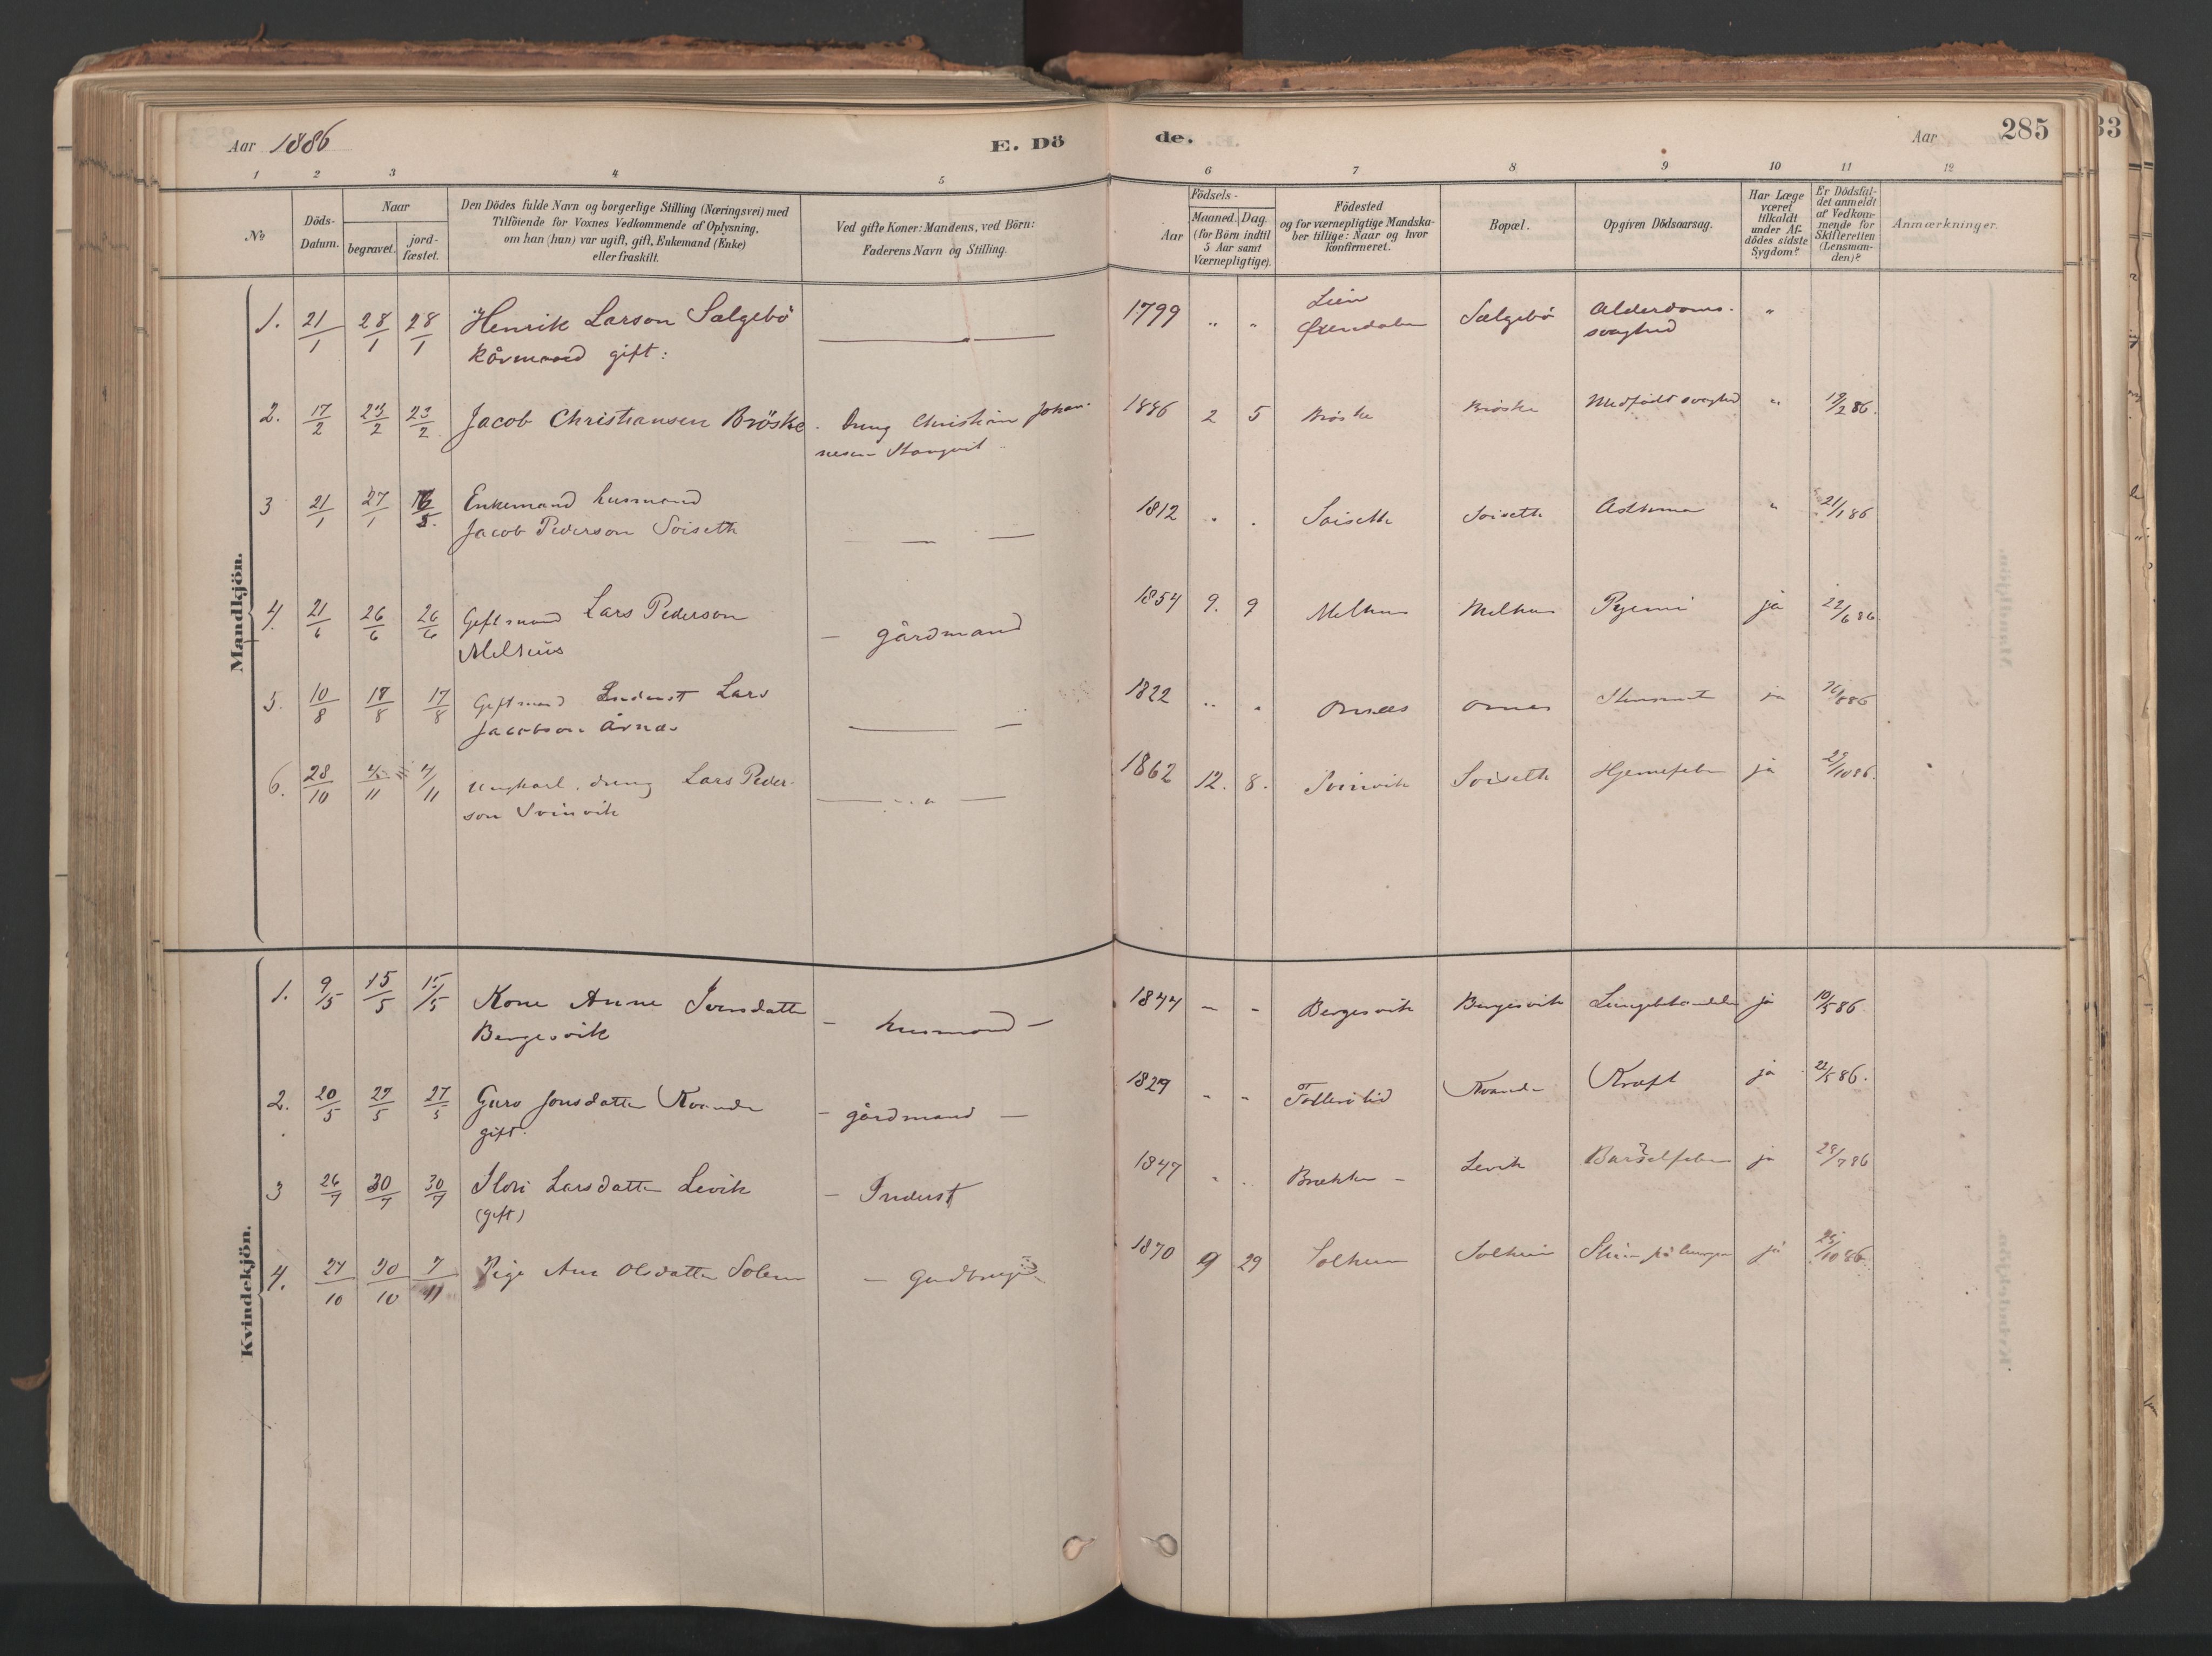 Aar 1886
E. Dö
de.
Aar
285
33
1 2 3 4 5
6 7 8 9 10 11 12
No
Döds-Datum.
Naar
begravet.
jord-fæstet.
Den Dödes fulde Navn og borgerlige Stilling (Næringsvei) med
Tilföiende for Voxnes Vedkommende af Oplysning,
om han (hun) var ugift, gift, Enkemand (Enke)
eller fraskilt.
Ved gifte Koner: Mandens, ved Börn:
Faderens Navn og Stilling.
Aar
Födsels-
Maaned. Dag.
(for Börn indtil
5 Aar samt
Værnepligtige).
Födested
og for værnepligtige Mandska-
ber tillige: Naar og hvor
konfirmeret.
Bopæl.
Opgiven Dödsaarsag.
Har Læge
været
tilkaldt
under Af-
dödes sidste
Sygdom?
Er Dödsfal-
det anmeldt
af Vedkom-
mende for
Skifteretten
(Lensman-
den)?
Anmærkninger.
Mandkjön.
1. 21/1 28/1 28/1 Henrik Larson Sælgebö 1799 " " Lien Sælgebö Alderdoms-
Kårmand gift: Øxendalen svaghed "
2. 17/2 23/2 23/2 Jacob Christiansen Bröske. Dreng Christian Johan- 1886 2 5 Bröske Bröske Medfödt svaghed " 19/2 86.
nesen Stangvik
3 21/1 27/1 Enkemand husmand 1812 . . Soiseth Soiseth Asthma " 21/1 86
Jacob Pederson Soiseth — — —
4. 21/6 26/6 26/6 Giftmand Lars Pederson 1854 9. 9 Melhus Melhus Pyemi ja 22/6 86
Melhus — gårdmand
5. 10/8 17/8 17/8 Giftmand Inderst Lars 1822 " " ja
Jacobson Årnæs — —
6. 28/10 4/11 4/11 Ungkarl, dreng Lars Peder- 1862 12. 8. Svinvik Soiseth ja 29/10 86.
son Svinvik
Kvindekjön.
1. 9/5 15/5 15/5 Kone Anne Iversdatter 1844 – – Bergesvik Bergesvik ja 10/5 86
Bergesvik — husmand —
2. 20/5 27/5 27/5 Guro Jonsdatter Kvande – gårdmand — 1829 – – Kvande Kræft ja 22/5 86.
gift.
3 26/7 30/7 30/7 Larsdatter Levik – Inderst 1847 Brækken – Levik Barselfeber ja 28/7 86
(gift)
4. 27/10 30/10 7/11 Pige Ane Olsdatter Solem — 1870 9 29 Solheim Solheim ja